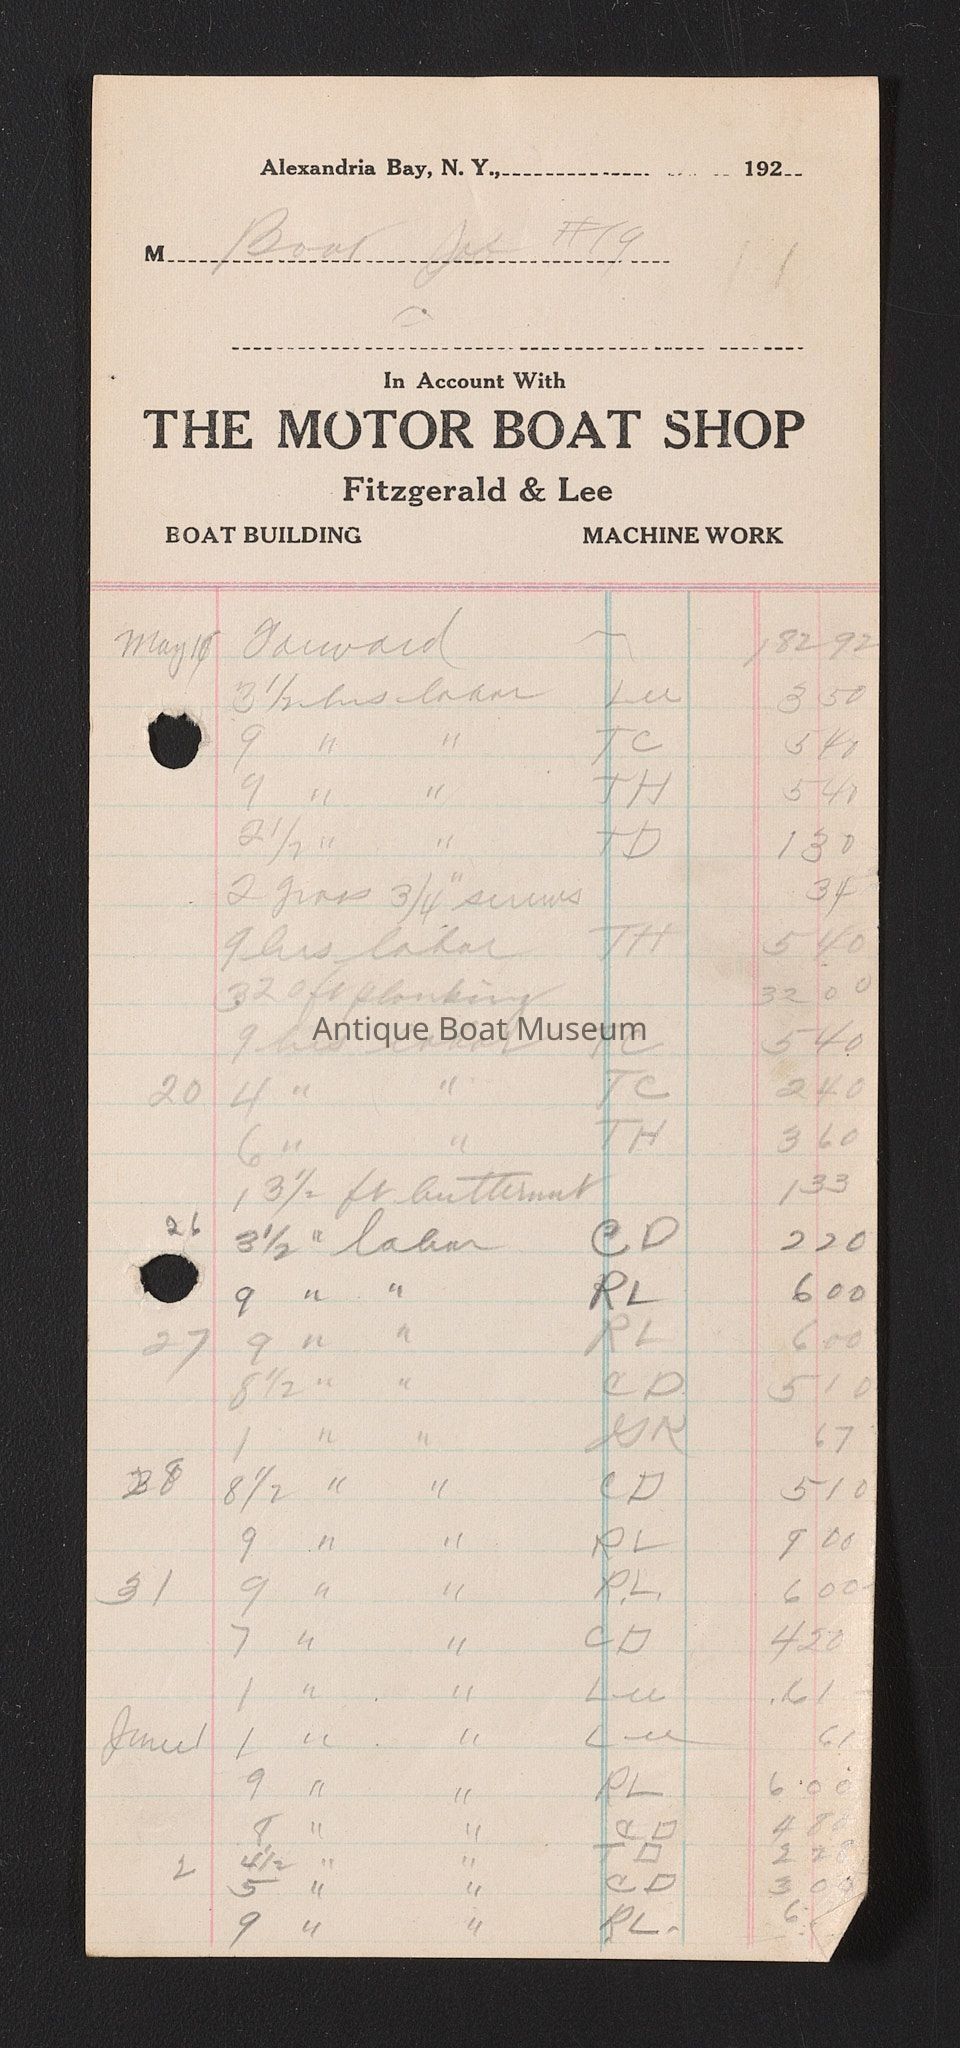 Alexandria Bay, N. Y., 192
M Boat Job #19
In Account With
THE MOTOR BOAT SHOP
Fitzgerald & Lee
BOAT BUILDING MACHINE WORK
May 18 Forward 182 92
3 1/2 hrs labor Lee 3 50
9 " " TC 5 40
9 " " TH 5 40
2 1/2 " " TD 1 30
2 gross 3/4" screws 34
9 hrs labor TH 5 40
320 ft planking 32 00
9 hrs labor TC 5 40
Antique Boat Museum
20 4 " " TC 2 40
6 " " TH 3 60
13 1/2 ft butternut 1 33
26 3 1/2 " labor CD 2 20
9 " " RL 6 00
27 9 " " RL 6 00
8 1/2 " " CD 5 10
1 " " 67
28 8 1/2 " " CD 5 10
9 " " RL 9 00
31 9 " " RL. 6 00
7 " " CD 4 20
1 " " Lee .61
June 1 1 " " Lee 61
9 " " RL 6 00
8 " " CD 4 80
2 4 1/2 " " TD 2
5 " " CD 3 00
9 " " RL. 6